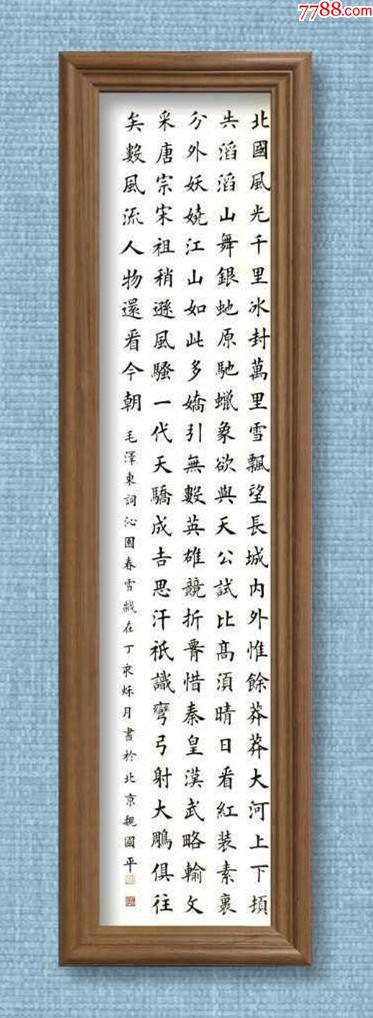 7788.com
北國風光千里冰封萬里雪飄望長城内外惟餘莽莽大河上下頓
失滔滔山舞銀虵原馳蠟象欲與天公試比髙須晴日看紅装素裹
分外妖嬈江山如此多嬌引無數英雄競折腰惜秦皇漢武略輸文
采唐宗宋祖稍遜風騷一代天驕成吉思汗祇識彎弓射大鵰俱往
矣數風流人物還看今朝 毛澤東詞沁園春雪歲在丁亥秌月書於北京魏國平